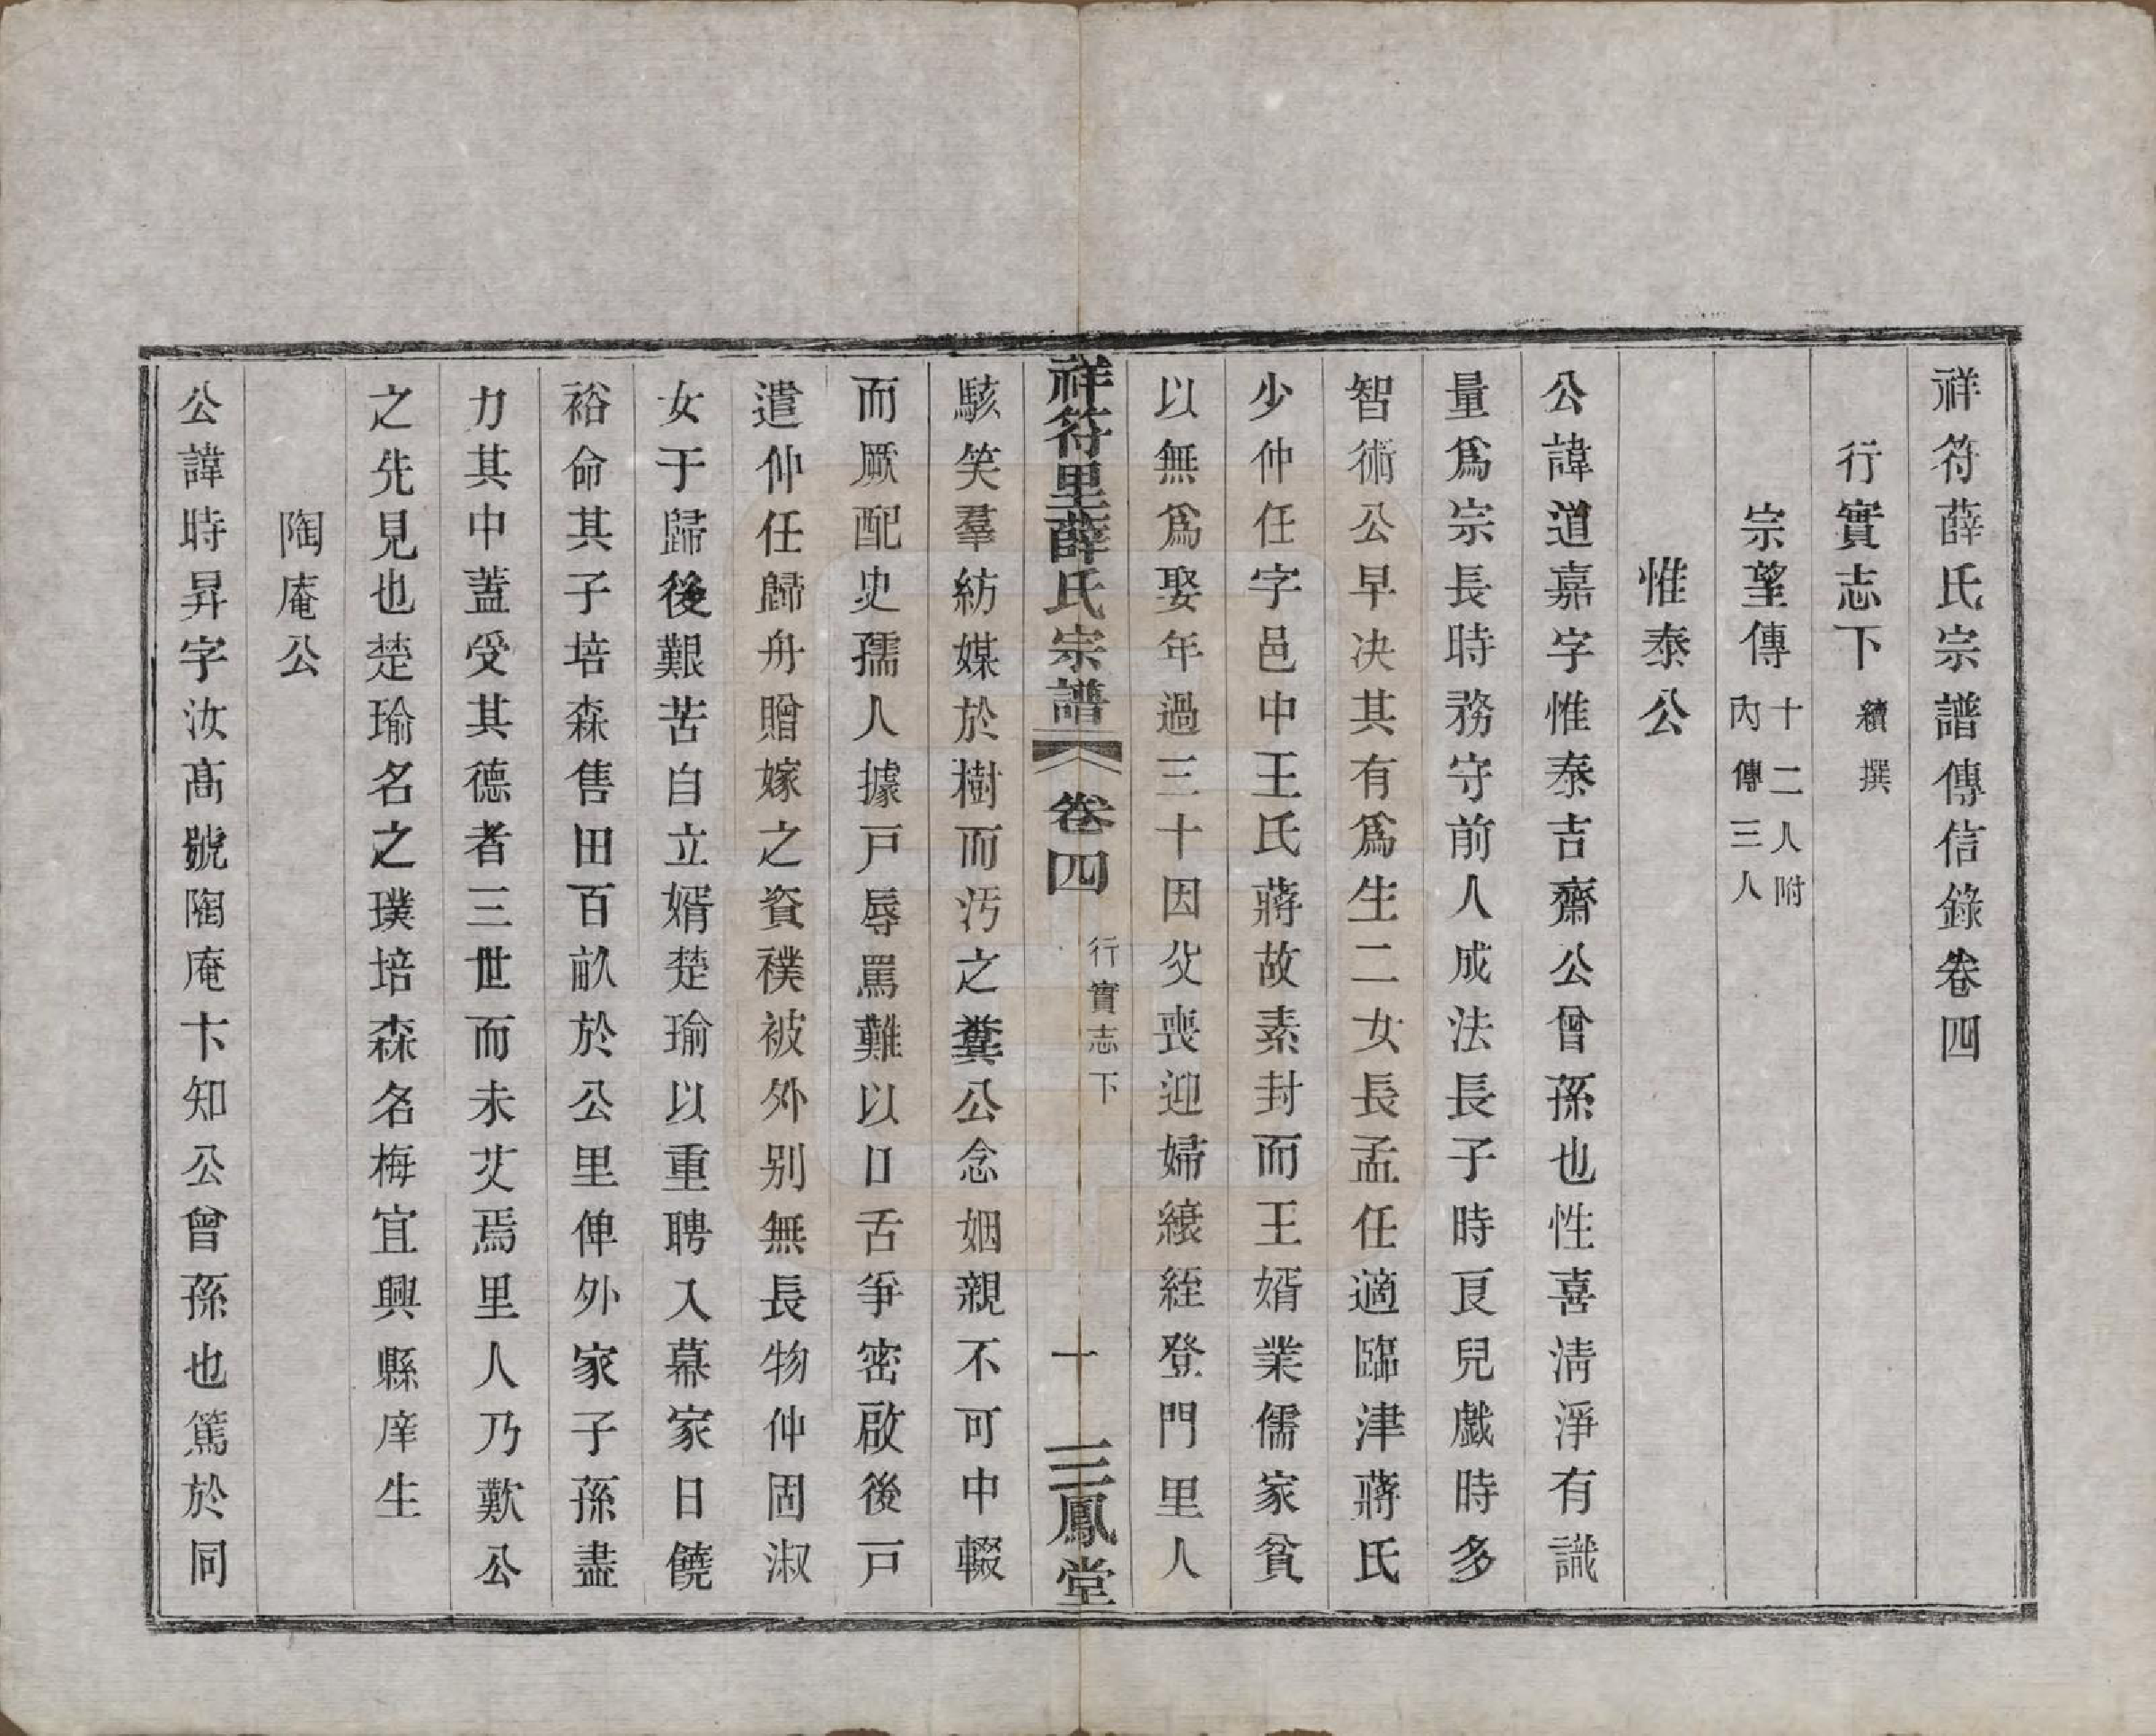 祥符薛氏宗譜傳信錄卷四
行實志下 續撰
宗望傳 十二人附內傳三人
惟泰公
公諱道嘉字惟泰吉齋公曾孫也性喜淸淨有識
量爲宗長時務守前人成法長子時良兒戲時多
智術公早决其有爲生二女長孟任適臨津蔣氏
少仲任字邑中王氏蔣故素封而王婿業儒家貧
以無爲娶年過三十因父喪迎婦縗絰登門里人
祥符里薛氏宗譜 卷四 行實志下 一 三鳳堂
駭笑羣紡媒於樹而污之糞公念姻親不可中輟
而厥配史孺人據戸辱罵難以口舌爭密啟後戸
遣仲任歸舟贈嫁之資襆被外别無長物仲固淑
女于歸後艱苦自立婿楚瑜以重聘入幕家日饒
裕命其子培森售田百畝於公里俾外家子孫盡
力其中蓋受其德者三世而未艾焉里人乃歎公
之先見也楚瑜名之璞培森名梅宜興縣庠生
陶庵公
公諱時昇字汝髙號陶庵卞知公曾孫也篤於同